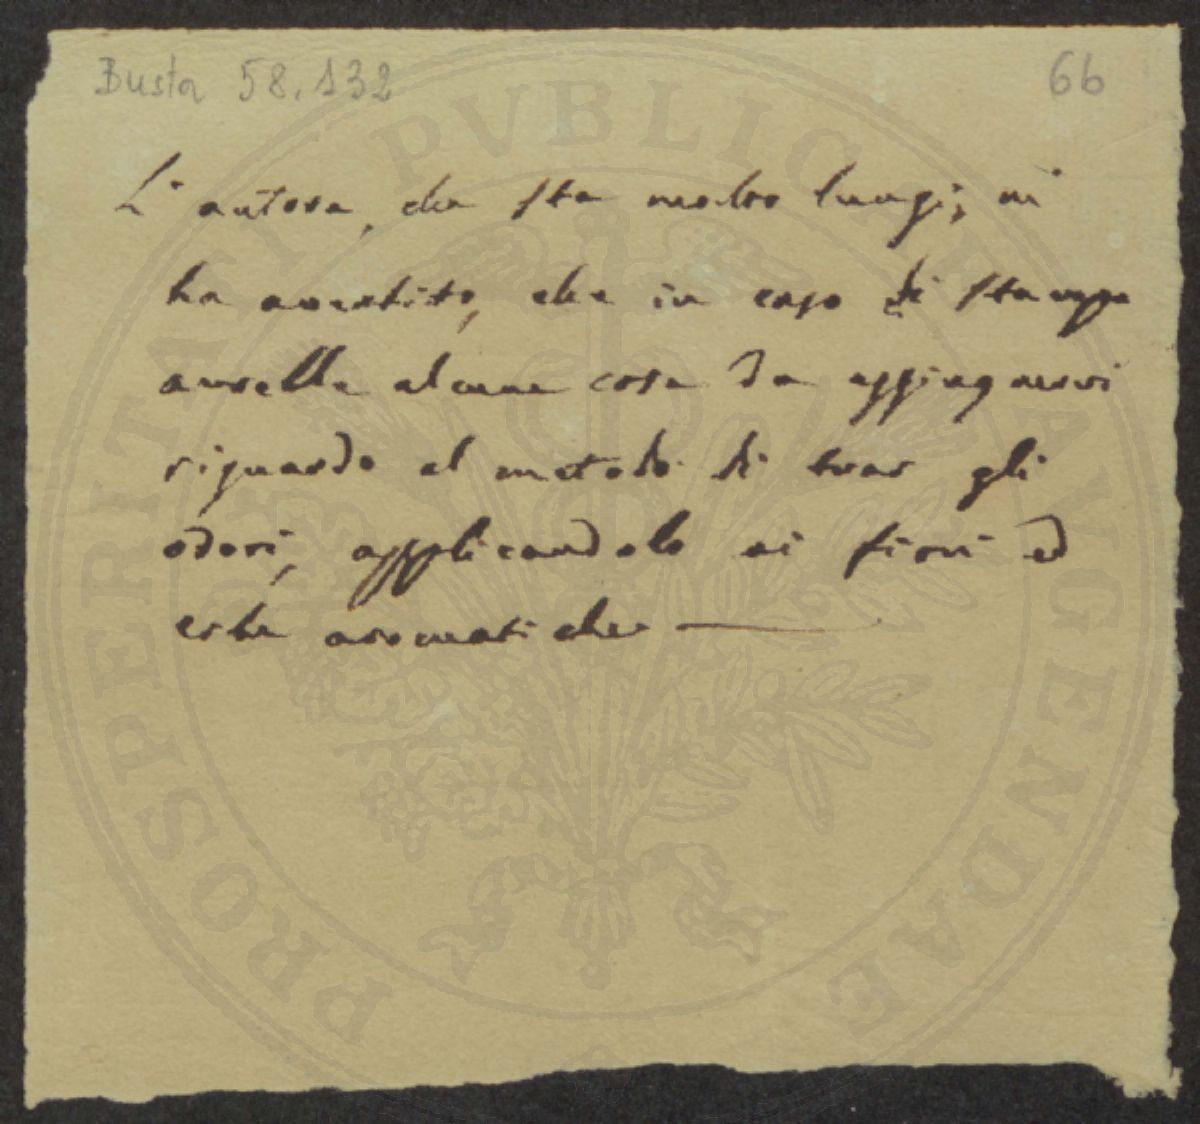 Busta 58.132
66
L'autore, che sta molto lungi, mi
ha avertito, che in caso di stampa
avrebbe alcune cose da aggiugnervi
riguardo al metodo di trar gli
odori, applicandolo ai fiori ed
erbe aromatiche
PROSPERITATI PVBLICAE AVGENDAE